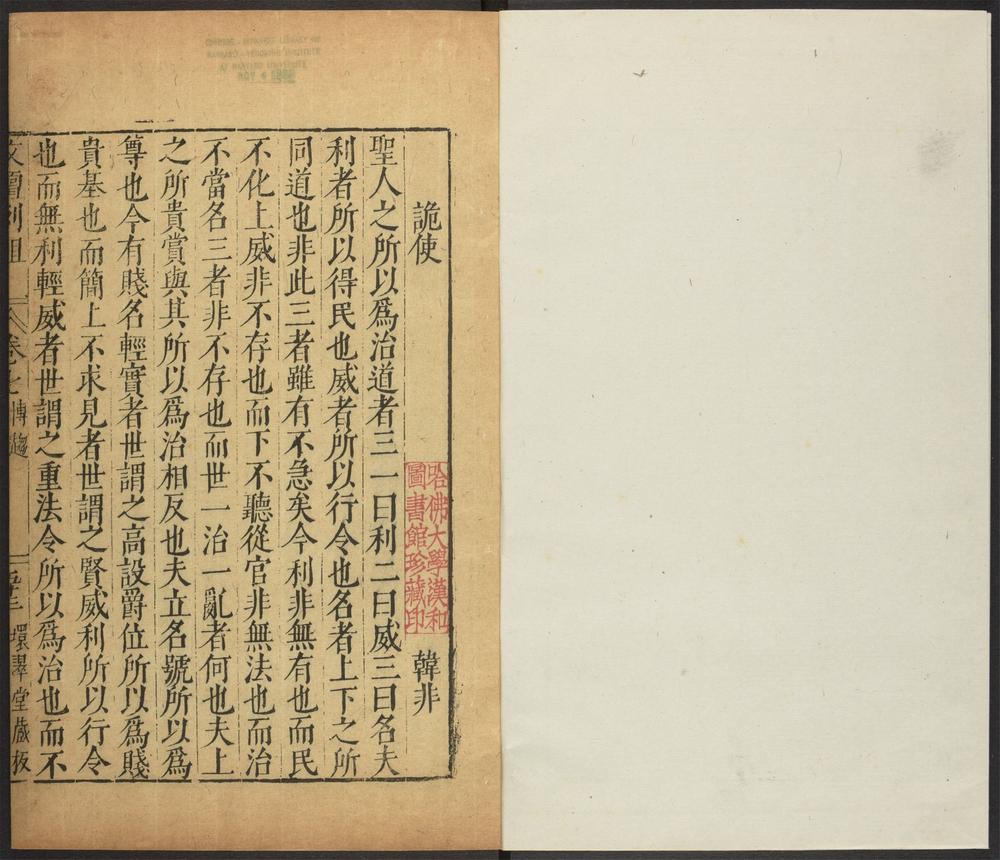 詭使
韓非
哈佛大學漢和
圖書館珍藏印
聖人之所以爲治道者三一曰利二曰威三曰名夫
利者所以得民也威者所以行令也名者上下之所
同道也非此三者雖有不急矣今利非無有也而民
不化上威非不存也而下不聽從官非無法也而治
不當名三者非不存也而世一治一亂者何也夫上
之所貴賞與其所以爲治相反也夫立名號所以爲
尊也今有賤名輕實者世謂之高設爵位所以爲賤
貴基也而簡上不求見者世謂之賢威利所以行令
也而無利輕威者世謂之重法令所以爲治也而不
卷七
環翠堂藏板